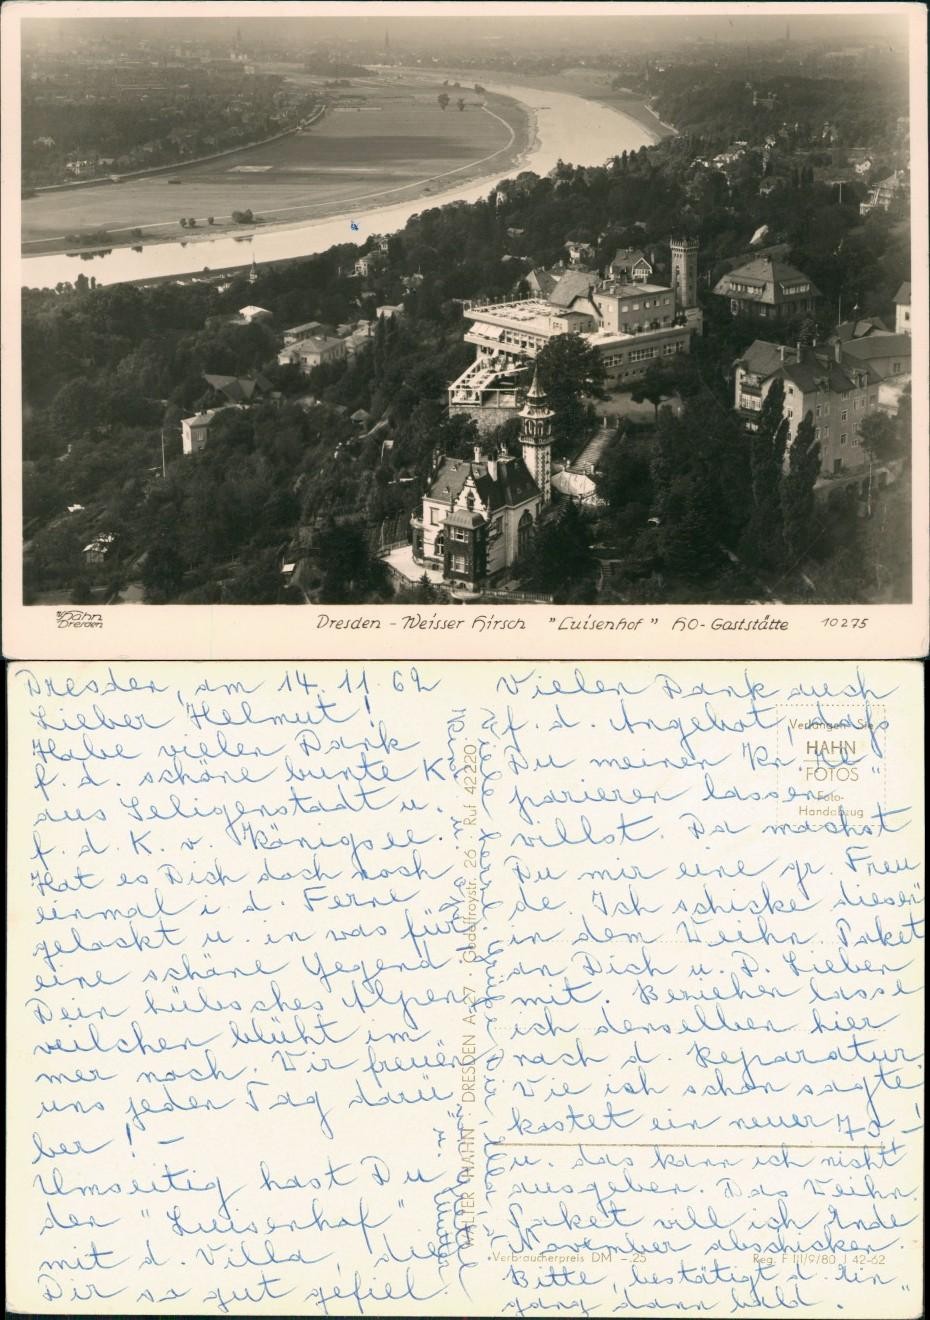 Hahn
Dresden
Dresden - Weisser Hirsch "Luisenhof" HO-Gaststätte 10275
Dresden, am 14. 11. 62
Lieber Helmut!
Habe vielen Dank
f. d. schöne bunte K.
aus Seligenstadt u.
f. d. K. v. Königsee.
Hat es Dich doch noch
einmal i. d. Ferne
gelockt u. in was für
eine schöne Gegend.
Dein hübsches Alpen
veilchen blüht im
mer noch. Wir freuen
uns jeden Tag darü
ber! -
Umseitig hast Du
den "Luisenhof"
mit d. Villa, die
Dir so gut gefiel.
Vielen Dank auch
f. d. Angebot, dass
Du meinen Kn. Re"
parieren lassen
willst. Da machst
Du mir eine gr. Freu
de. Ich schicke diesen
in dem Weihn. Paket
an Dich u. D. Lieben
mit. Beziehen lasse
ich denselben hier
nach d. Reparatur.
Wie ich schon sagte
kostet ein neuer 70.-
u. das kann ich nicht
ausgeben. Das Weihn.
Paket will ich Ende
November abschicken.
Bitte, bestätigt d. Ein"
gang dann bald.
WALTER HAHN · DRESDEN A 27 · Godeffroystr. 26 · Ruf 42220
Verlangen Sie
HAHN
FOTOS
Foto-
Handabzug
Verbraucherpreis DM -.25
Reg. F III/9/80 J 42-62